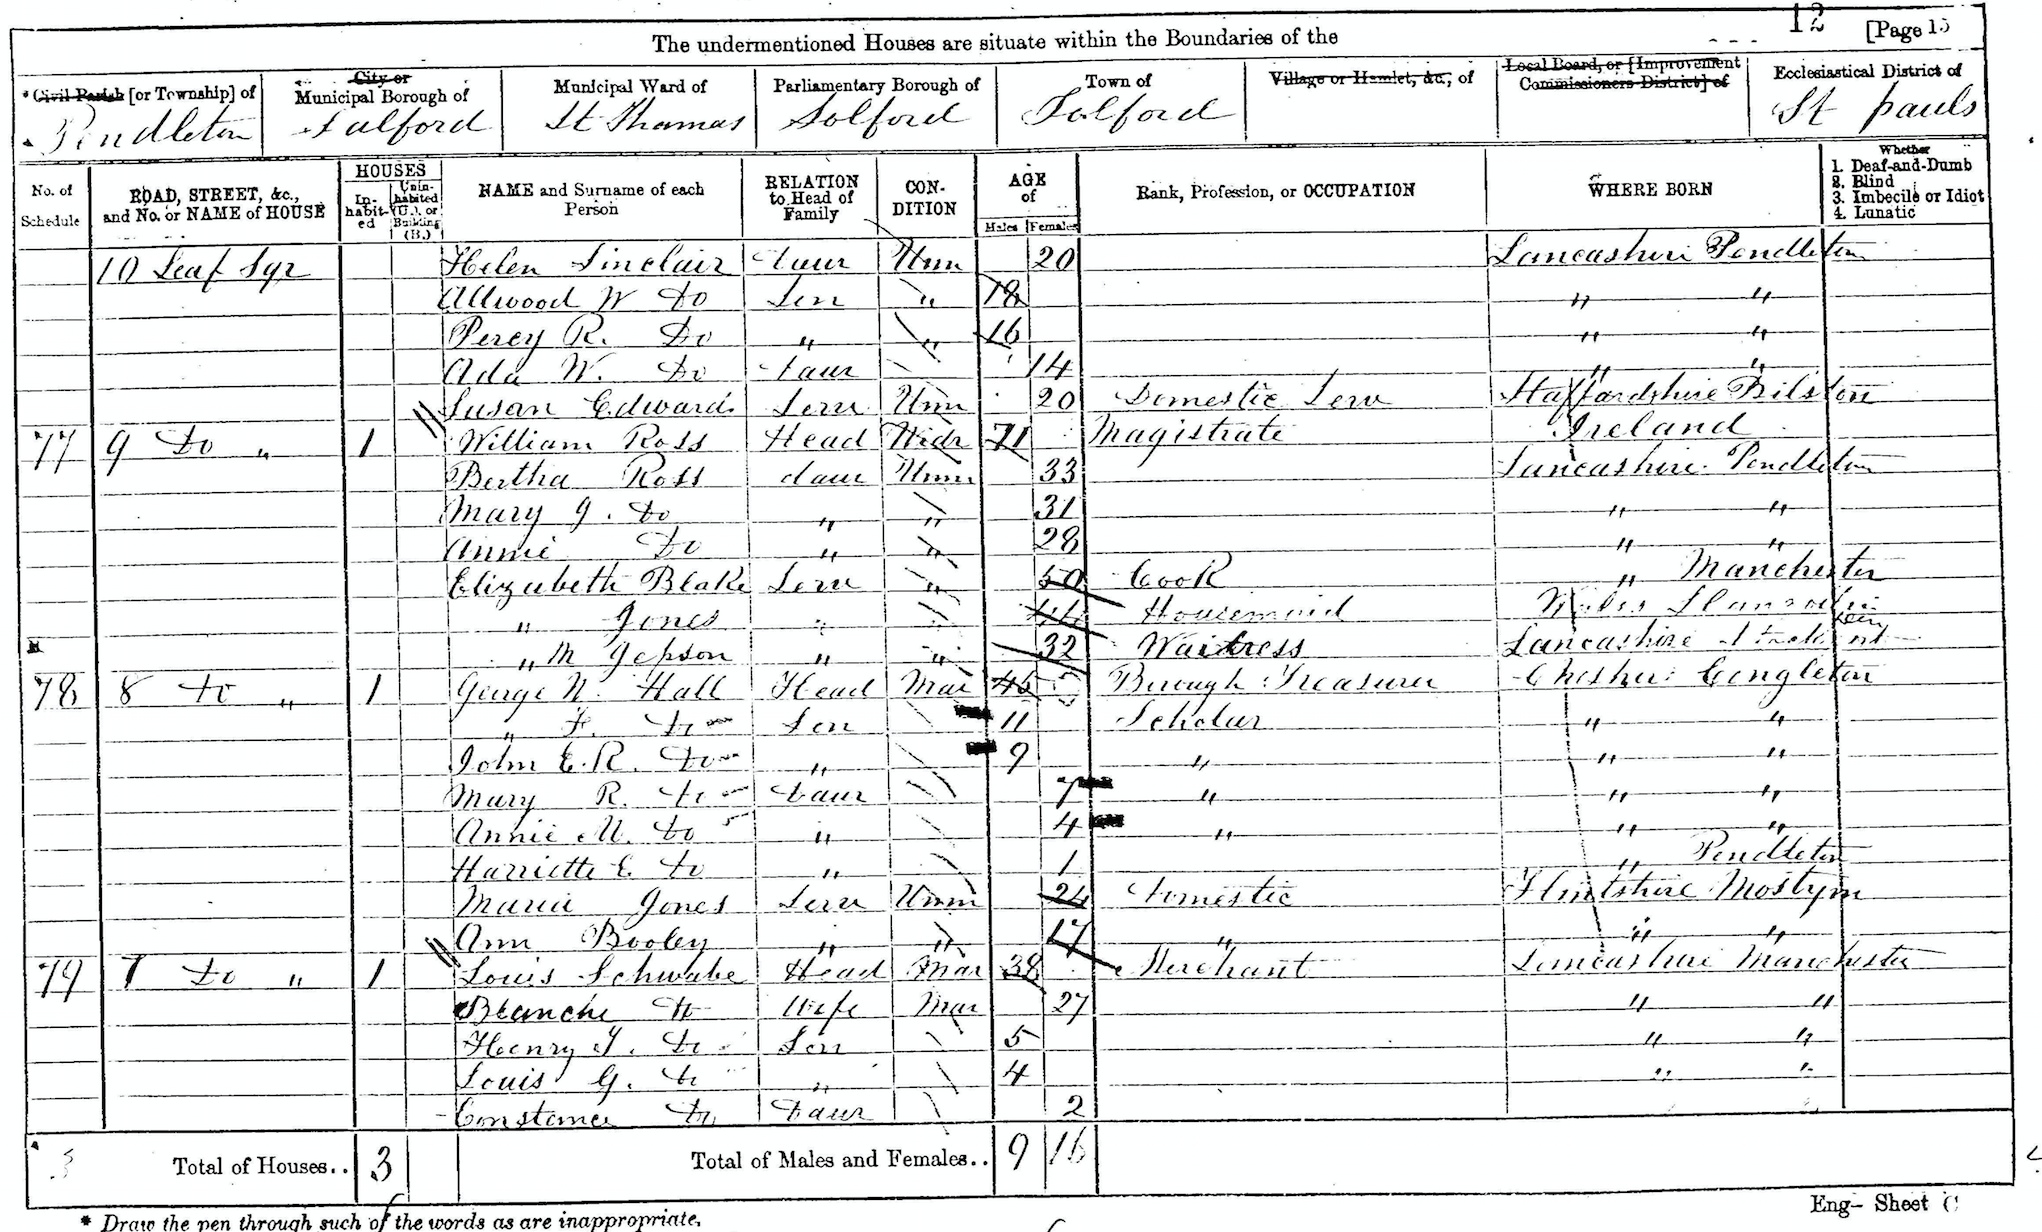 12 [Page 15
The undermentioned Houses are situate within the Boundaries of the
* Civil Parish [or Township] of
Pendleton
City or Municipal Borough of
Salford
Municipal Ward of
St Thomas
Parliamentary Borough of
Salford
Town of
Salford
Village or Hamlet, &c., of
Local Board, or [Improvement Commissioners District] of
Ecclesiastical District of
St pauls
No. of Schedule
ROAD, STREET, &c., and No. or NAME of HOUSE
HOUSES
In-habit-ed
Unin-habited (U.), or Building (B.)
NAME and Surname of each Person
RELATION to Head of Family
CON-DITION
AGE of
Males Females
Rank, Profession, or OCCUPATION
WHERE BORN
Whether
1. Deaf-and-Dumb
2. Blind
3. Imbecile or Idiot
4. Lunatic
10 Leaf Sqr Helen Sinclair Daur Unm 20 Lancashire Pendleton
Attwood W Do Son " 18 " "
Percy R. Do " " 16 " "
Ada W. Do Daur 14 " "
Susan Edwards Serv Unm 20 Domestic Serv Staffordshire Bilston
77 9 Do " 1 William Ross Head Widr 71 Magistrate Ireland
Bertha Ross daur Unm 33 Lancashire Pendleton
Mary J. Do " " 31 " "
Annie Do " " 28 " "
Elizabeth Blake Serv " 50 Cook " Manchester
" Jones " " 44 Housemaid Wales
" M Jepson " " 32 Waitress Lancashire
78 8 Do " 1 George N. Hall Head Mar 45 Borough Treasurer Cheshire Congleton
" F. Do Son 11 Scholar " "
John E. R. Do " 9 " " "
Mary R. Do Daur 7 " " "
Annie M. Do " 4 " " "
Harriette E. Do " 1 " Pendleton
Maria Jones Serv Unm 24 Domestic Flintshire Mostyn
Ann Booley " " 17 " " "
79 7 Do " 1 Louis Schwabe Head Mar 38 Merchant Lancashire Manchester
Blanche Do Wife Mar 27 " "
Henry T. Do Son 5 " "
Louis G. Do " 4 " "
Constance Do Daur 2
3 Total of Houses.. 3 Total of Males and Females.. 9 16
* Draw the pen through such of the words as are inappropriate.
Eng- Sheet